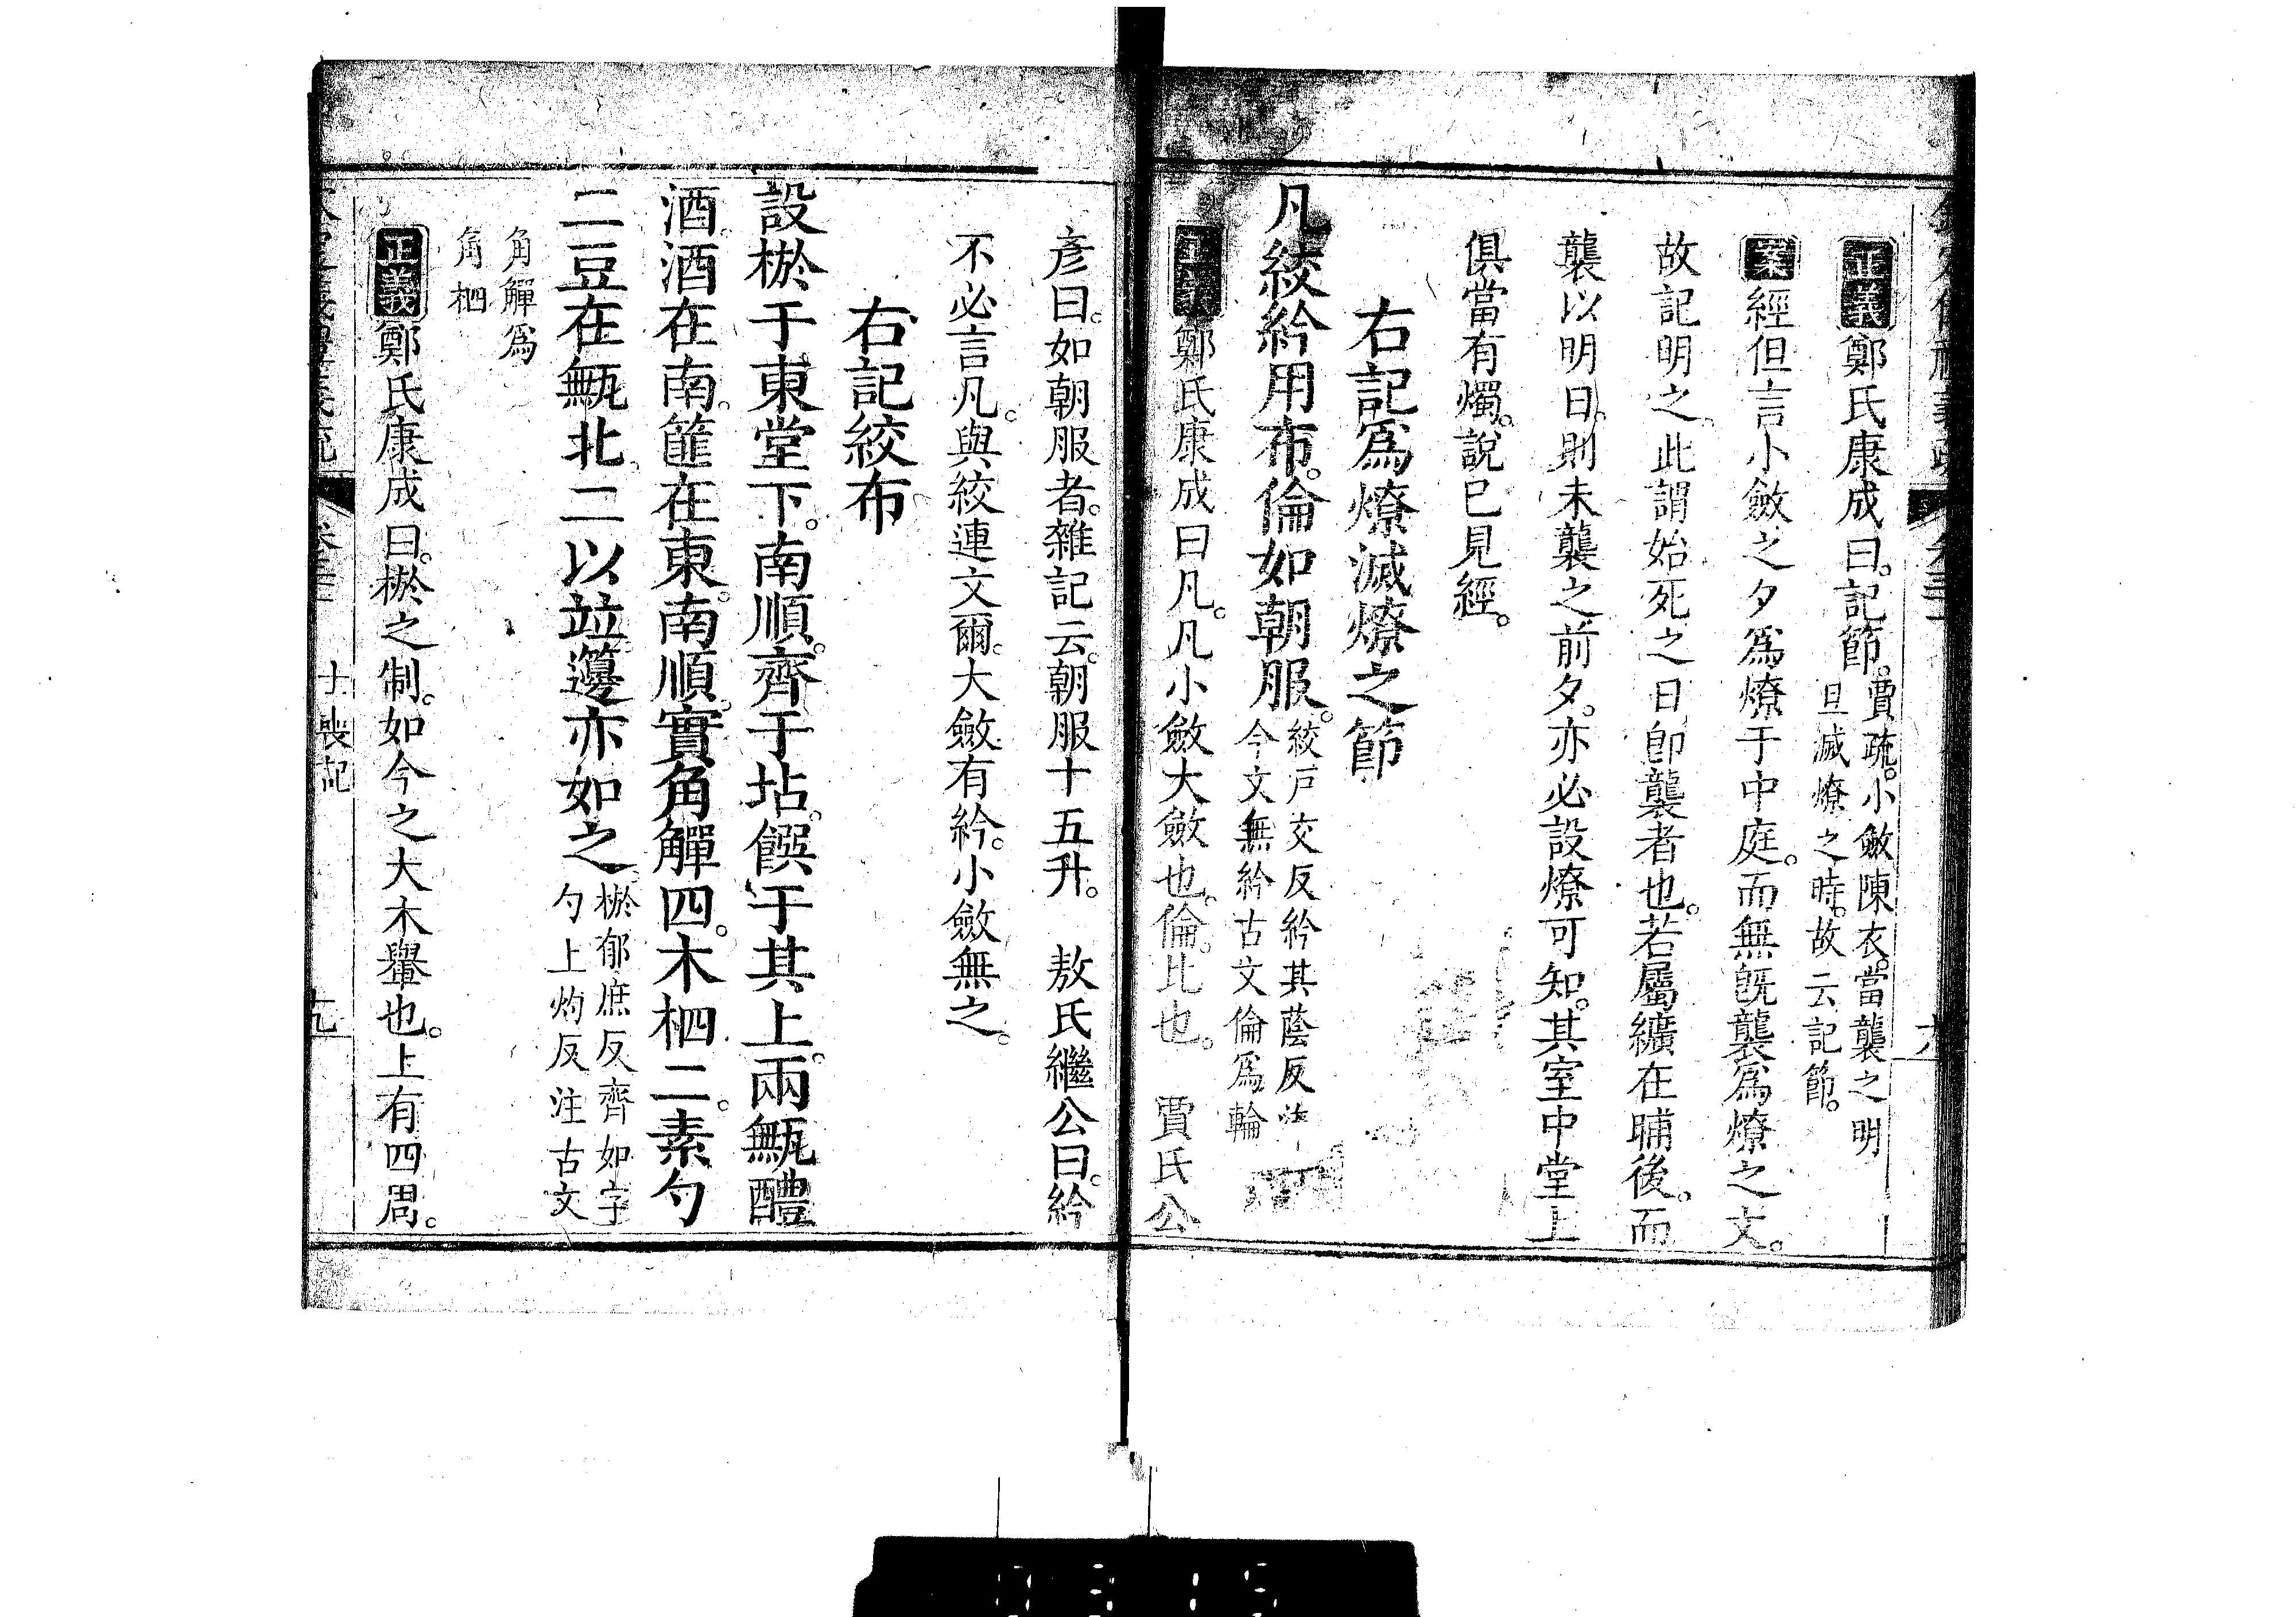 正義鄭氏康成曰。記節。賈疏。小斂陳衣。當襲之明
旦滅燎之時。故云記節。
案經但言小斂之夕爲燎于中庭。而無旣襲爲燎之文。
故記明之。此謂始死之日卽襲者也。若屬纊在晡後。而
襲以明日。則未襲之前夕。亦必設燎可知。其室中堂上
俱當有燭。說已見經。
右記爲燎滅燎之節
凡絞紟用布。倫如朝服。絞戶交反紟其蔭反注
今文無紟古文倫爲輪
正義鄭氏康成曰凡。凡小斂大斂也。倫。比也。 賈氏公
彥曰。如朝服者。雜記云。朝服十五升。 敖氏繼公曰。紟
不必言凡。與絞連文爾。大斂有紟。小斂無之。
右記絞布
設棜于東堂下。南順。齊于坫。饌于其上。兩甒醴
酒。酒在南。篚在東。南順。實角觶四。木柶二。素勺
二豆在甒北。二以竝籩亦如之。棜郁庶反齊如字
勺上灼反注古文
角觶爲
角柶
正義鄭氏康成曰。棜之制。如今之大木轝也。上有四周。
士喪記